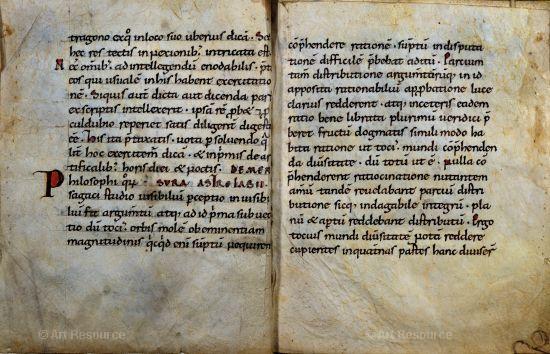 tragono exꝗ inloco suo uberius dicā. Sed
hec res tectis inflexionibꝰ intricata est
cē omībꝰ. ad intellegendū enodabilis. p̄t
tos qui usualē inhis habent exercitatio
nē. Siquis aut̄ dicta aut dicenda pari
exscriptis intellexerit. ipsā rē ꝓbe & p̄
culdubio reperiet satis diligent̄ digestā
cē. His ita p̄taxatis. uota p̄soluendo q̄
lit̄ hoc exercitium dicā. & inp̄mis de ar
tificalibꝰ horis diei & noctis. DE MEN
Philosophi quo SURA ASTROLABII
sagaci studio uisibiliū pceptio in inuisibi
liū fit argumtū atqꝫ ad id p̄ma sub uec
tio dū toci orbis mole ob eminentiam
magnitudinis qͥcqͥd eni sūptū nequirent
cōp̄hendere rationē. sūptū indisputa
tionē difficilē p̄bebat aditū. Partium
tam distributione argumt̄isqꝫ in id
appositis rationabiliū app̄batione luce
clarius redderent. atqꝫ inceteris eadem
ratio bene librata plurimū ueridici p̄
beret fructū dogmatis simili modo ha
bita ratione ut toci mundi cōp̄henden
da diūsitate. dū toti ut ē. nulla cō
p̄henderent ratiocinatione nutantem
amū tandē reuelabant partiū distri
butione sicqꝫ indagabile integrū. pla
nū & aptū reddebant distributū. Ergo
tocius mundi diūsitatē uotū reddere
cupientes inquatuor partes hanc diuiser̄
© Art Resource
© Art Resource